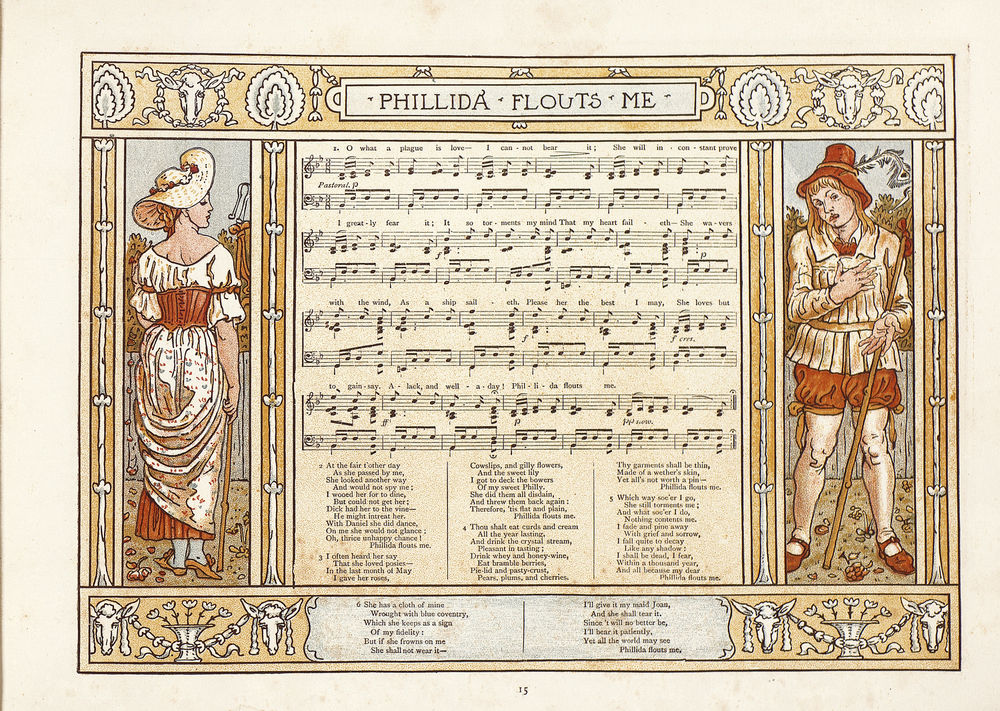 · PHILLIDA · FLOUTS · ME ·
1. O what a plague is love— I can - not bear it; She will in - con - stant prove
Pastoral. p
I great - ly fear it; It so tor - ments my mind That my heart fail - eth— She wa - vers
f
p
with the wind, As a ship sail - eth. Please her the best I may, She loves but
f
f cres.
to gain - say. A - lack, and well - a - day! Phil - li - da flouts me.
ff
p
pp slow.
2 At the fair t'other day
As she passed by me,
She looked another way
And would not spy me;
I wooed her for to dine,
But could not get her;
Dick had her to the vine—
He might intreat her.
With Daniel she did dance,
On me she would not glance;
Oh, thrice unhappy chance!
Phillida flouts me.
3 I often heard her say
That she loved posies—
In the last month of May
I gave her roses,
Cowslips, and gilly flowers,
And the sweet lily
I got to deck the bowers
Of my sweet Philly.
She did them all disdain,
And threw them back again:
Therefore, 'tis flat and plain,
Phillida flouts me.
4 Thou shalt eat curds and cream
All the year lasting,
And drink the crystal stream,
Pleasant in tasting;
Drink whey and honey-wine,
Eat bramble berries,
Pie-lid and pasty-crust,
Pears, plums, and cherries.
Thy garments shall be thin,
Made of a wether's skin,
Yet all's not worth a pin—
Phillida flouts me.
5 Which way soe'er I go,
She still torments me;
And what soe'er I do,
Nothing contents me.
I fade and pine away
With grief and sorrow,
I fall quite to decay
Like any shadow:
I shall be dead, I fear,
Within a thousand year,
And all because my dear
Phillida flouts me.
6 She has a cloth of mine
Wrought with blue coventry,
Which she keeps as a sign
Of my fidelity:
But if she frowns on me
She shall not wear it—
I'll give it my maid Joan,
And she shall tear it.
Since 't will no better be,
I'll bear it patiently,
Yet all the world may see
Phillida flouts me.
15